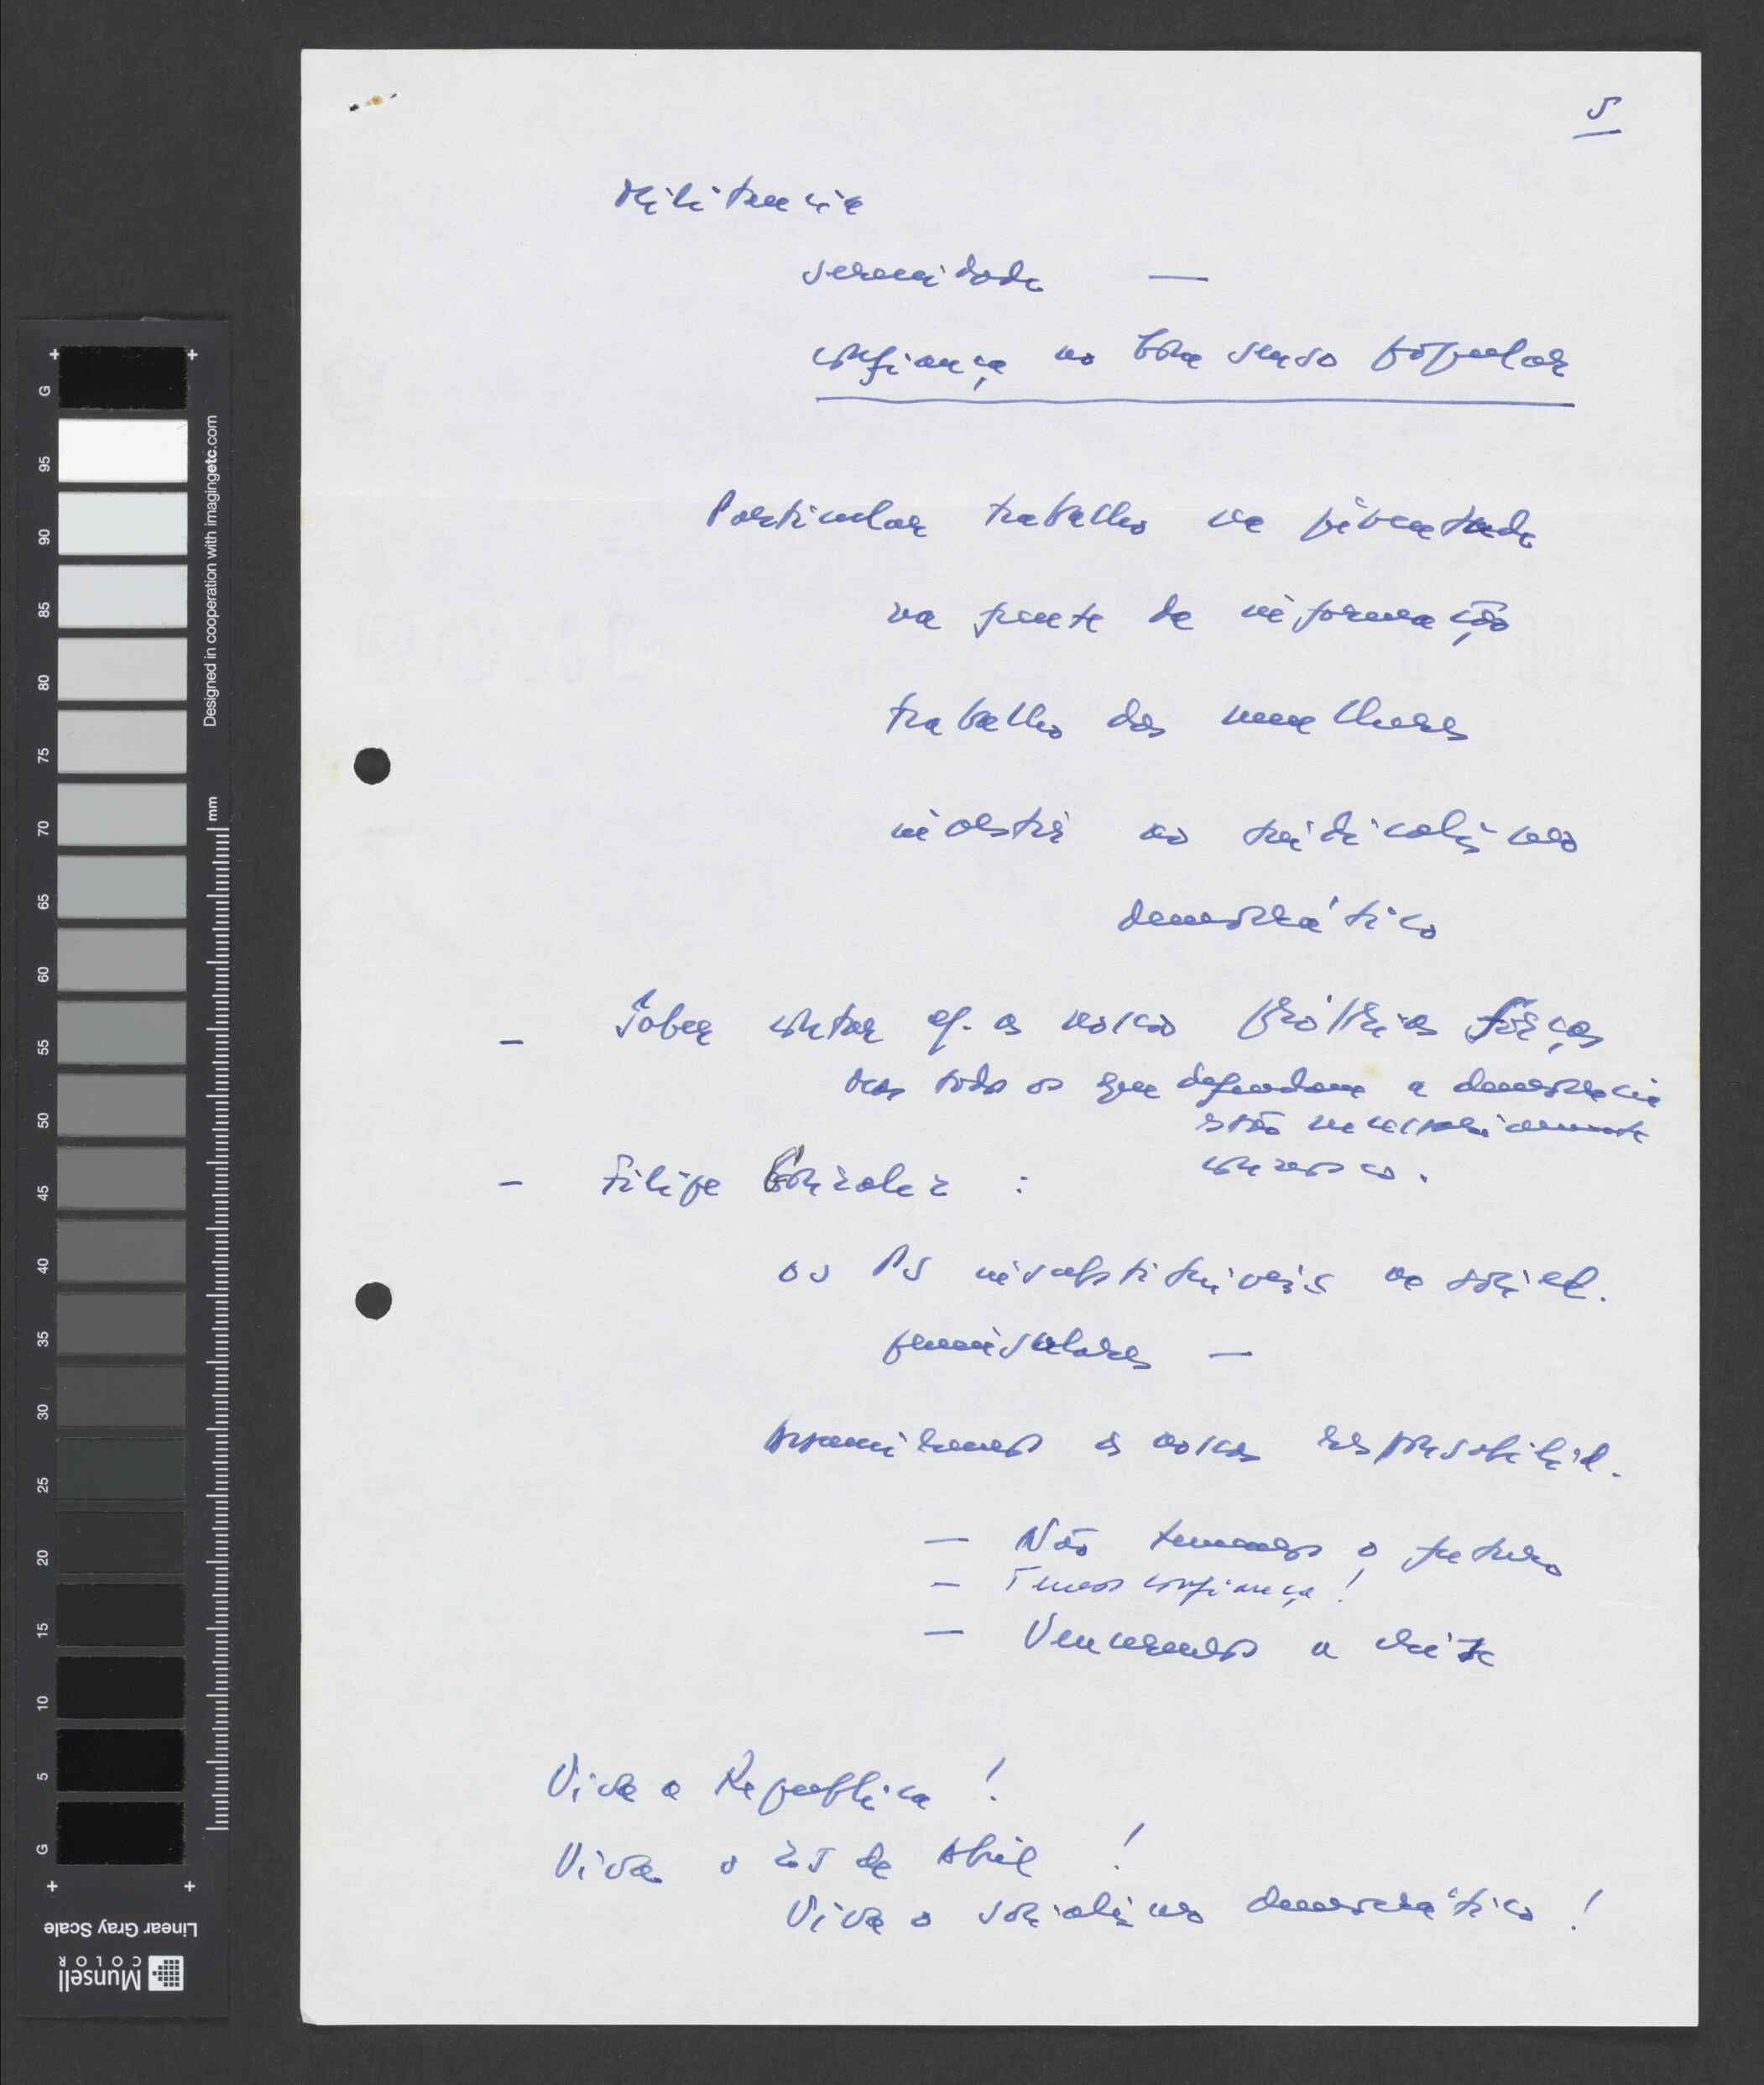 5
Militancia
serenidade —
confiança no bom senso popular
Particular trabalho na juventude
na frente da informação
trabalho das mulheres
insistir no sindicalismo
democrático
— Saber contar c/. as nossas próprias forças
mas todos os que defendem a democracia
estão necessariamente
connosco.
— Filipe Gonzalez :
os PS insubstituiveis na socied.
peninsulares —
Assumiremos as nossas responsabilid.
— Não tememos o futuro
— Temos confiança !
— Venceremos a crise
Viva a Republica !
Viva o 25 de Abril !
Viva o socialismo democrático !
G
95
90
85
80
75
70
65
60
55
50
45
40
35
30
25
20
15
10
5
G
mm
Designed in cooperation with imagingetc.com
Linear Gray Scale
Munsell
COLOR